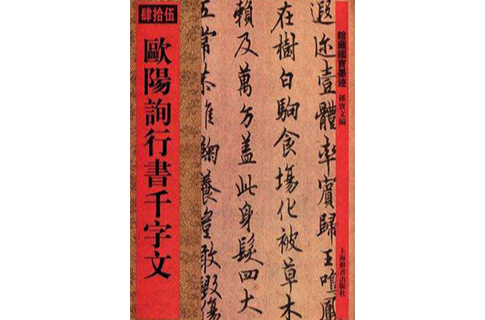 肆拾伍
歐陽詢行書千字文
館藏國寶墨迹
孫寶文編
上海辭書出版社
遐迩壹體率賓歸王鳴鳳
在樹白駒食場化被草木
賴及萬方蓋此身髮四大
五常恭惟鞠養豈敢毀傷